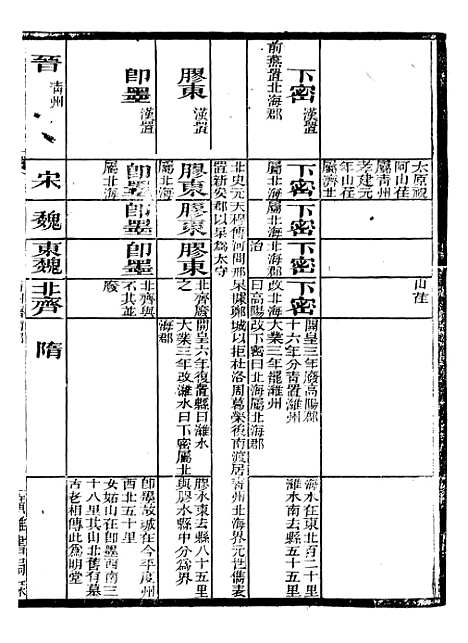 太原祝
阿山茌
屬青州
孝建元
年山茌
屬濟北
山茌
下密
漢置
前燕置北海郡
下密
屬北海
下密
屬北海
下密
北海郡
治
下密
改北海
曰高陽
開皇三年廢高陽郡
十六年分青置濰州
大業三年罷濰州
改下密曰北海屬北海郡
海水在東北百二十里
濰水南去縣五十五里
北史元天穆傳河間邢杲踞鄴城以拒杜洛周葛榮後南渡居青州北海界元世儁表
置新安郡以杲爲太守
膠東
漢置
膠東
屬北海
膠東
膠東
北齊廢
之
開皇六年復置縣曰濰水
大業三年改濰水曰下密屬北
海郡
膠水東去縣八十五里
與膠水縣中分爲界
卽墨
漢置
卽墨
屬北海
卽墨
卽墨
北齊與
不其並
廢
卽墨故城在今平度州
西北五十里
女姑山在卽墨西南三
十八里其山北舊有基
古老相傳此爲明堂
晉
青州
宋
魏
東魏
北齊
隋